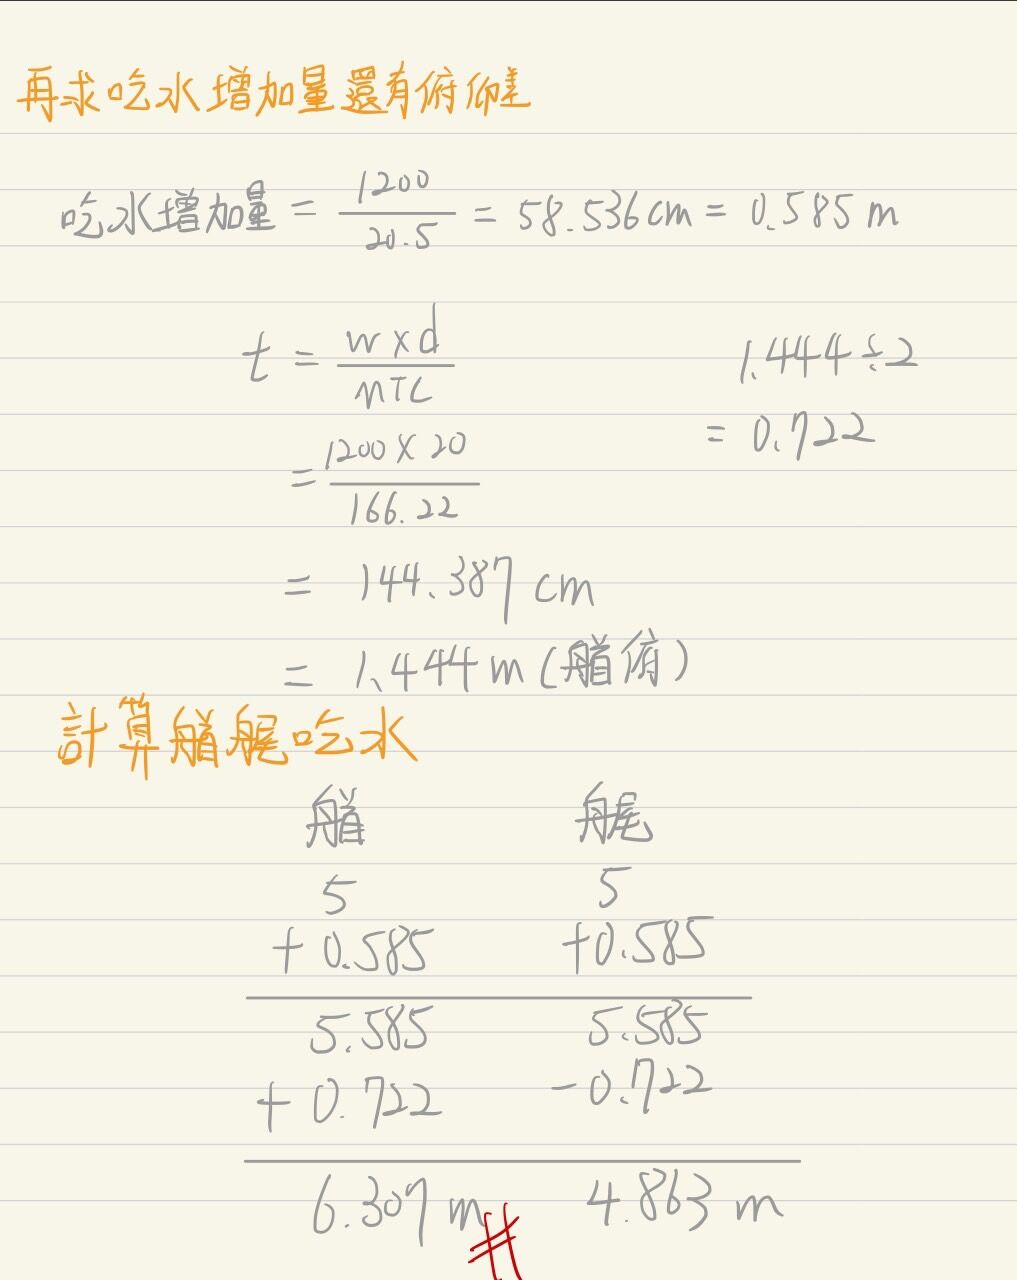 再求吃水增加量還有俯仰差
吃水增加量 = 1200/20.5 = 58.536 cm = 0.585 m
t = w×d/MTC
1.444÷2
= 0.722
= 1200×20/166.22
= 144.387 cm
= 1.444 m (艏俯)
計算艏艉吃水
艏 艉
5 5
+ 0.585 +0.585
5.585 5.585
+ 0.722 -0.722
6.307 m 4.863 m
#